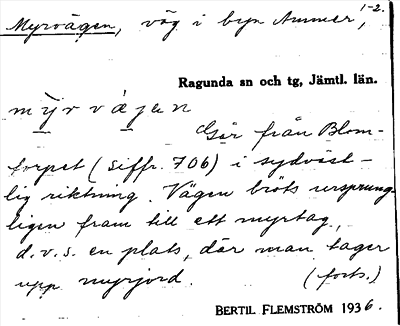 Myrvägen, väg i byn Ammer, 1-2.
Ragunda sn och tg, Jämtl. län.
mȳr vä̀jen
Går från Blom-
torpet (siffr. 706) i sydväst-
lig riktning. Vägen bröts ursprung-
ligen fram till ett myrtag,
d.v.s. en plats, där man tager
upp myrjord. (forts.)
BERTIL FLEMSTRÖM 1936.